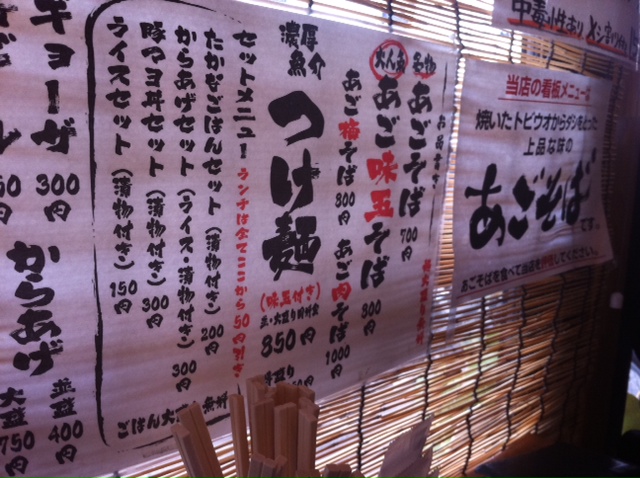 中毒
当店の看板メニュー
焼いたトビウオからダシをとった
上品な味の
あごそば
です。
あごそばを食べて当店を
してください。
お品書き
名物
あごそば
700円
大人気
あご味玉そば
800円
あご梅そば
800円
あご肉そば
1000円
濃厚
魚介
つけ麺
(味玉付き)
850円
セットメニュー
ランチは全てここから50円引き
たかなごはんセット(漬物付き)
200円
からあげセット(ライス・漬物付き)
300円
豚マヨ丼セット(漬物付き)
300円
ライスセット(漬物付き)
150円
ギョーザ
300円
からあげ
並盛
400円
大盛
750円